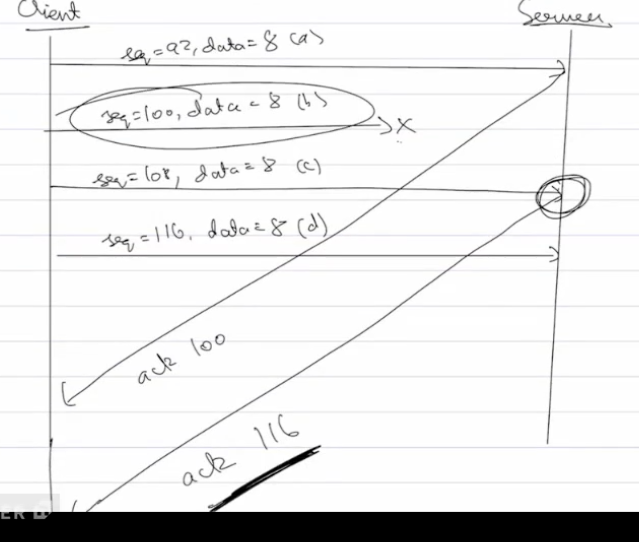 Client
Server
seq=92, data=8 (a)
seq=100, data=8 (b)
X
seq=108, data=8 (c)
seq=116, data=8 (d)
ack 100
ack 116
ER